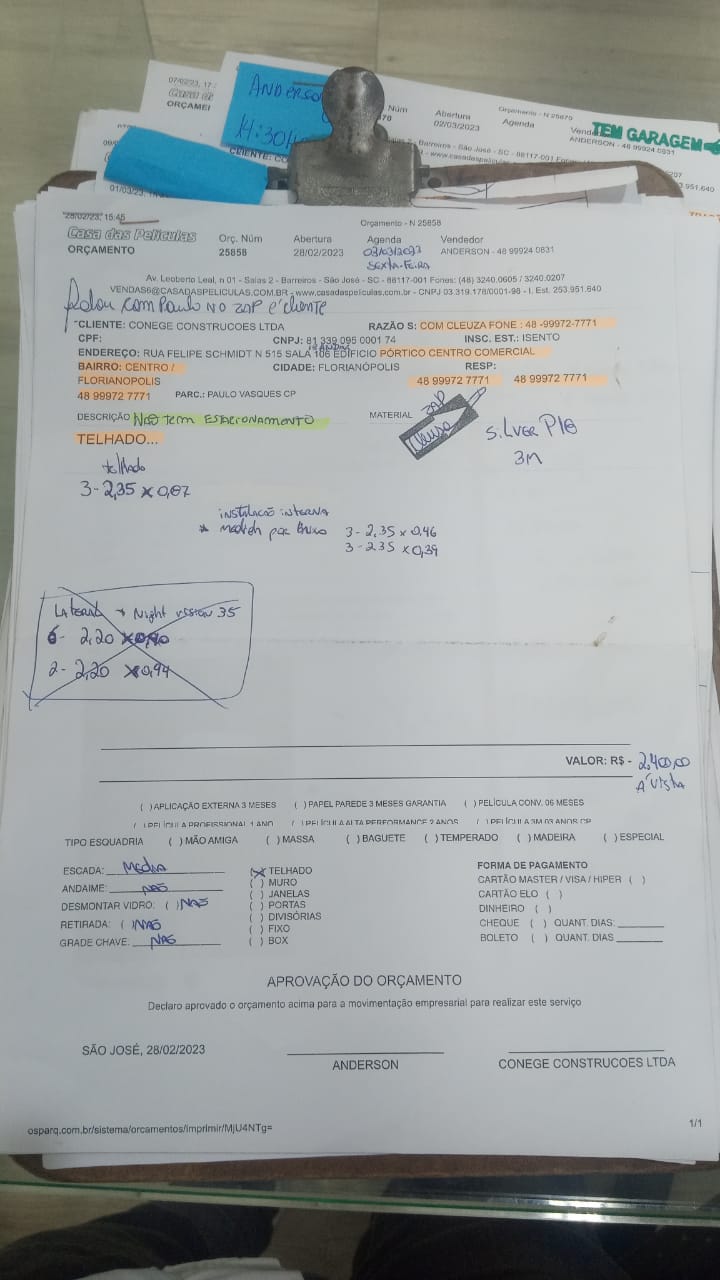 07/02/23, 17:
ORÇAMEI
ANDERSO
14:30h
Núm
Abertura
02/03/2023
Orçamento - N 25870
Agenda
TEM GARAGEM
ANDERSON - 48 99924 0831
CLIENTE: CO
01/03/23,
28/02/23, 15:45
Orçamento - N 25858
Casa das Películas
Orç. Núm
Abertura
Agenda
Vendedor
ORÇAMENTO
25858
28/02/2023
03/03/2023
ANDERSON - 48 99924 0831
SEXTA-FEIRA
Av. Leoberto Leal, n 01 - Salas 2 - Barreiros - São José - SC - 88117-001 Fones: (48) 3240.0605 / 3240.0207
VENDAS6@CASADASPELICULAS.COM.BR - www.casadaspeliculas.com.br - CNPJ 03.319.178/0001-98 - I. Est. 253.951.640
Falou com Paulo no ZAP é cliente
CLIENTE: CONEGE CONSTRUCOES LTDA
RAZÃO S: COM CLEUZA FONE : 48 -99972-7771
CPF:
CNPJ: 81 339 095 0001 74
INSC. EST.: ISENTO
ENDEREÇO: RUA FELIPE SCHMIDT N 515 SALA 106 EDIFICIO PÓRTICO CENTRO COMERCIAL
BAIRRO: CENTRO /
FLORIANOPOLIS
CIDADE: FLORIANÓPOLIS
RESP:
48 99972 7771
48 99972 7771
48 99972 7771
PARC.: PAULO VASQUES CP
DESCRIÇÃO Não tem ESTACIONAMENTO
MATERIAL
ZAP
Cleusa
TELHADO...
Silver P18
3M
telhado
3 - 2,35 x 0,87
instalação interna
* medida por baixo
3 - 2.35 x 0,46
3 - 2.35 x 0,39
Lateral * Night vision 35
6 - 2,20 x 0,90
2 - 2,20 x 0,94
VALOR: R$ - 2.400,00
A´ Vista
( ) APLICAÇÃO EXTERNA 3 MESES ( ) PAPEL PAREDE 3 MESES GARANTIA ( ) PELÍCULA CONV. 06 MESES
( ) PELÍCULA PROFISSIONAL 1 ANO ( ) PELÍCULA ALTA PERFORMANCE 2 ANOS ( ) PELÍCULA 3M 03 ANOS CP
TIPO ESQUADRIA ( ) MÃO AMIGA ( ) MASSA ( ) BAGUETE ( ) TEMPERADO ( ) MADEIRA ( ) ESPECIAL
ESCADA: Media
ANDAIME: NÃO
DESMONTAR VIDRO: ( ) NÃO
RETIRADA: ( ) NÃO
GRADE CHAVE: NÃO
(X) TELHADO
( ) MURO
( ) JANELAS
( ) PORTAS
( ) DIVISÓRIAS
( ) FIXO
( ) BOX
FORMA DE PAGAMENTO
CARTÃO MASTER / VISA / HIPER ( )
CARTÃO ELO ( )
DINHEIRO ( )
CHEQUE ( ) QUANT. DIAS:
BOLETO ( ) QUANT. DIAS
APROVAÇÃO DO ORÇAMENTO
Declaro aprovado o orçamento acima para a movimentação empresarial para realizar este serviço
SÃO JOSÉ, 28/02/2023
ANDERSON
CONEGE CONSTRUCOES LTDA
osparq.com.br/sistema/orcamentos/imprimir/MjU4NTg=
1/1